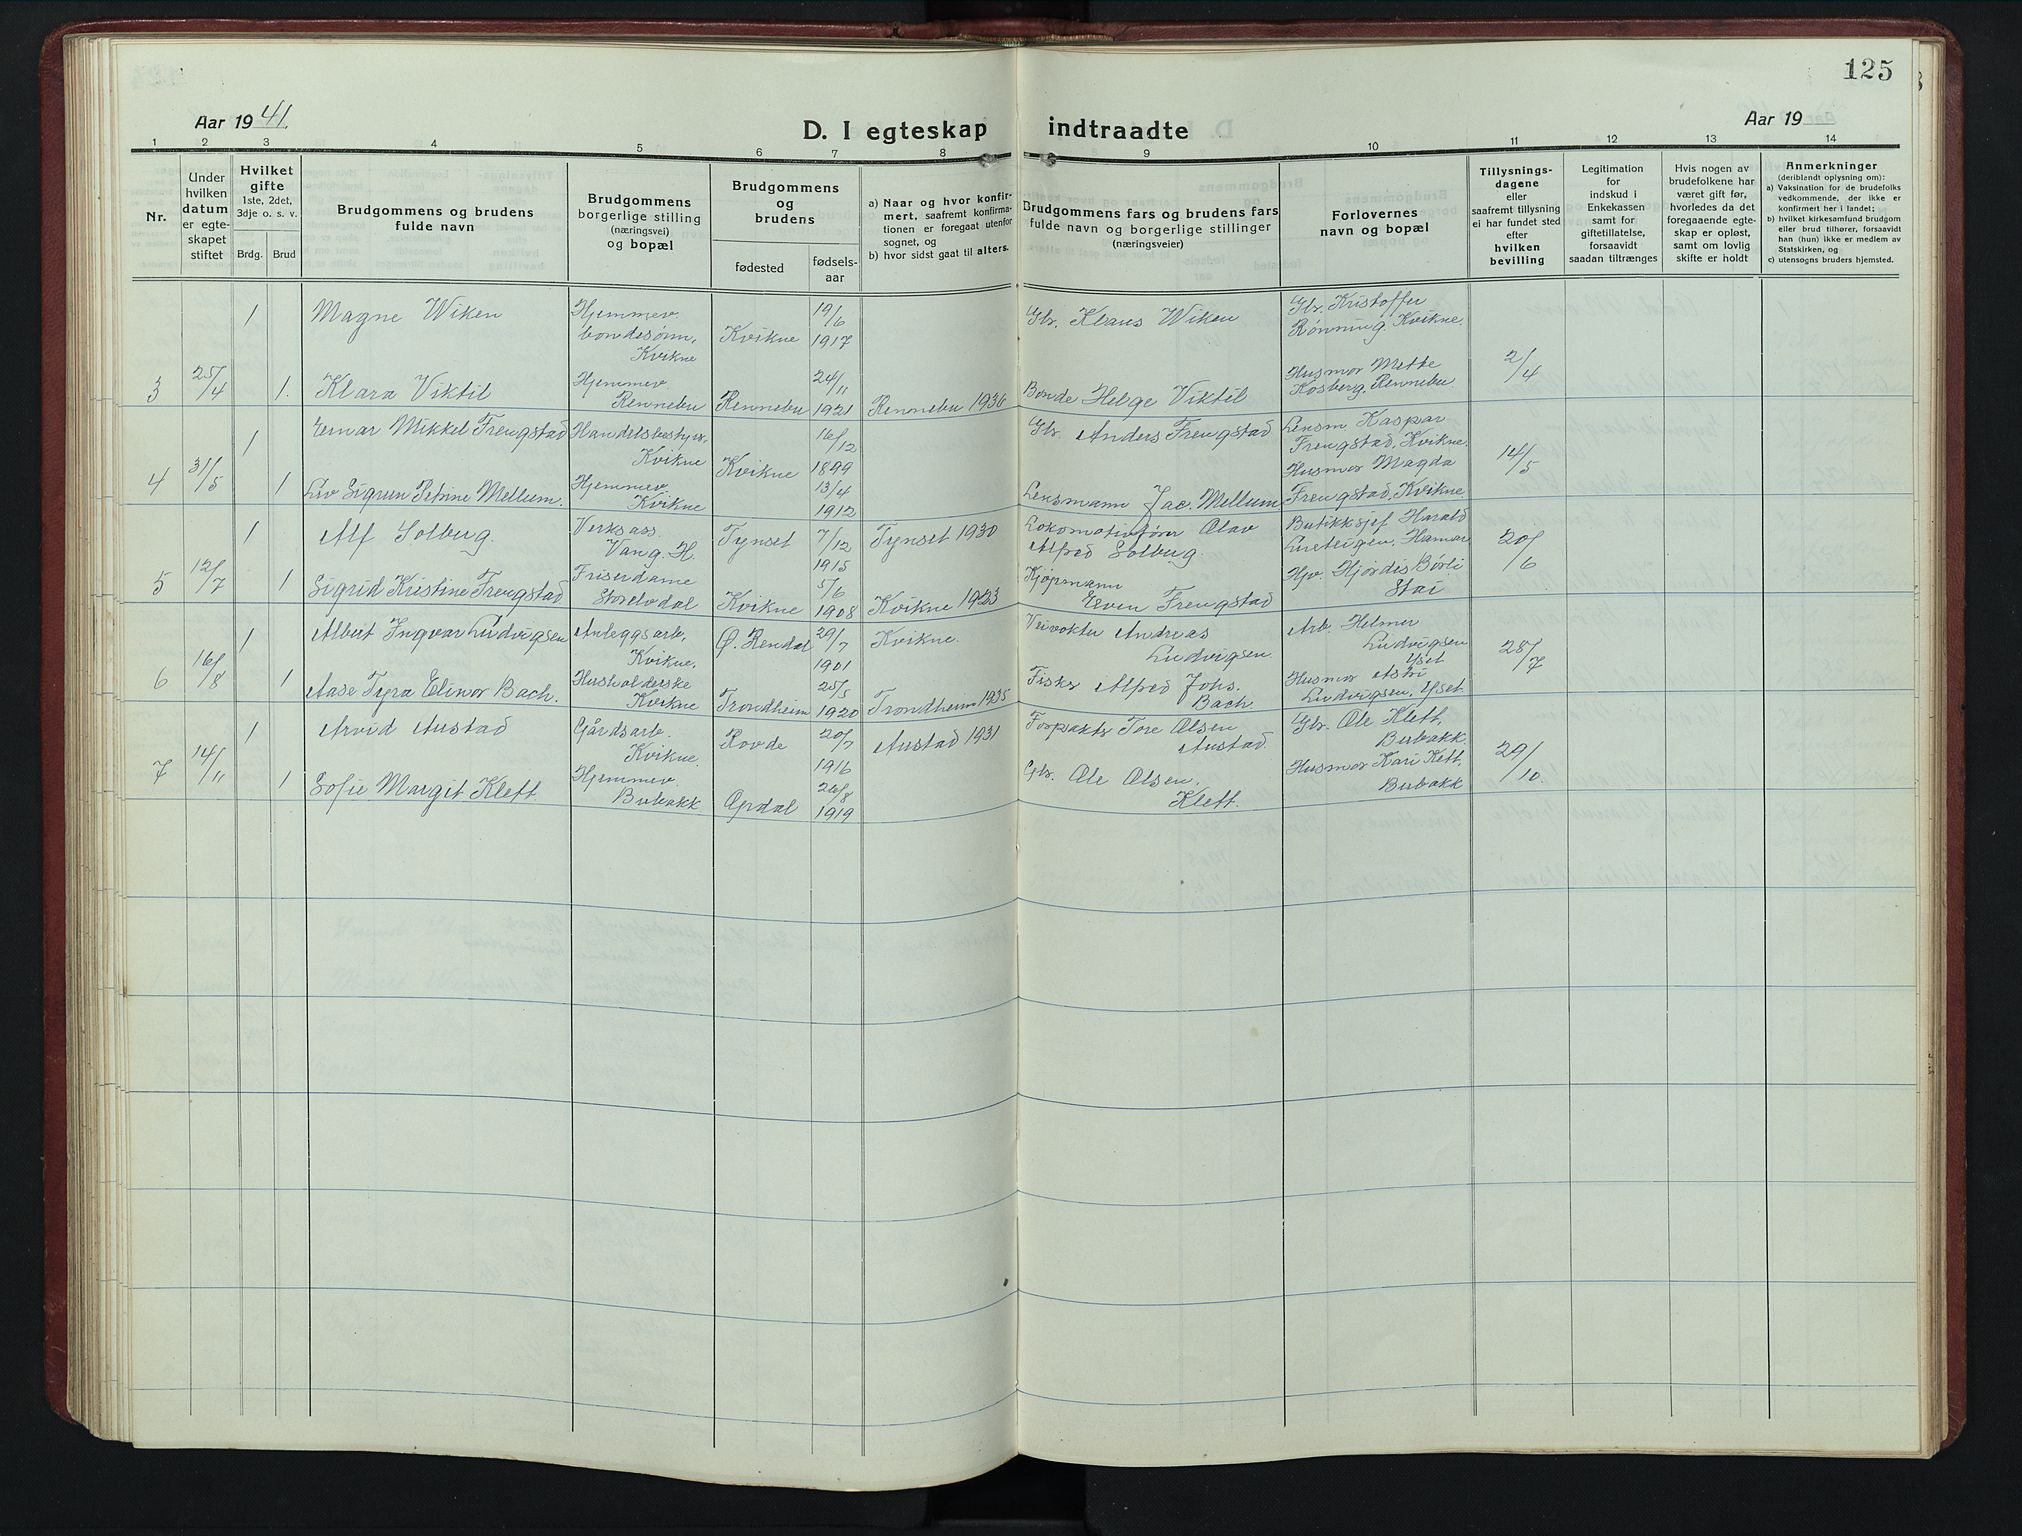 125
Aar 1941.
D. I egteskap indtraadte
Aar 19
1 2 3 4 5 6 7 8 9 10 11 12 13 14
Nr.
Under hvilken datum er egteskapet stiftet
Hvilket gifte
1ste, 2det, 3dje o. s. v.
Brdg. Brud
Brudgommens og brudens fulde navn
Brudgommens borgerlige stilling (næringsvei) og bopæl
Brudgommens og brudens
fødested
fødselsaar
a) Naar og hvor konfirmert, saafremt konfirmationen er foregaat utenfor sognet, og
b) hvor sidst gaat til alters.
Brudgommens fars og brudens fars fulde navn og borgerlige stillinger (næringsveier)
Forlovernes navn og bopæl
Tillysningsdagene eller saafremt tillysning ei har fundet sted efter hvilken bevilling
Legitimation for indskud i Enkekassen samt for giftetillatelse, forsaavidt saadan tiltrænges
Hvis nogen av brudefolkene har været gift før, hvorledes da det foregaaende egteskap er opløst, samt om lovlig skifte er holdt
Anmerkninger
(deriblandt oplysning om):
a) Vaksination for de brudefolks vedkommende, der ikke er konfirmert her i landet;
b) hvilket kirkesamfund brudgom eller brud tilhører, forsaavidt han (hun) ikke er medlem av Statskirken, og
c) utensogns bruders hjemsted.
3 25/4
1 Magne Wiken Hjemmev. bondesønn, Kvikne Kvikne 19/6 1917 Gbr. Klaus Wiken Gbr. Kristoffer Rønning, Kvikne. 2/4
1. Klara Viktil Hjemmev. Rennebu Rennebu 24/11 1921 Rennebu 1936 Bonde Helge Viktil Husmor Mette Kosberg, Rennebu.
4 31/5
1 Einar Mikkel Frengstad Handelsbestyr. Kvikne Kvikne 16/12 1899 Gbr. Anders Frengstad Lensm. Kaspar Frengstad, Kvikne. 14/5
1 Liv Sigrun Petrine Mellum. Hjemmev. Kvikne 13/4 1912 Lensmann Jac. Mellum Husmor Magda Frengstad, Kvikne.
5 12/7
1 Alf Solberg. Verksass. Vang, H. Tynset 7/12 1915 Tynset 1930 Lokomotivfører Olav Alfred Solberg. Butikksjef Harald Hamar 20/6
1 Sigrid Kristine Frengstad Friserdame Storelvdal Kvikne 5/6 1908 Kvikne 1923 Kjøpmann Even Frengstad Hjv. Hjørdis Børli Stai
6 16/8
1 Albert Ingvar Ludvigsen Anleggsarb. Kvikne. Ø. Rendal 29/7 1901 Kvikne. Veivokter Andreas Ludvigsen. Arb. Helmer Ludvigsen Yset 28/7
1 Aase Tyra Elinor Bach. Husholderske Kvikne Trondheim 25/5 1920 Trondheim 1935 Fisker Alfred Johs. Bach Husmor Astri Ludvigsen, Yset.
7 14/11
1 Arvid Austad Gårdsarb. Kvikne. Rovde 20/7 1916 Austad 1931 Forpakter Tore Olsen Austad. Gbr. Ole Klett, Bubakk. 29/10.
1 Sofie Margit Klett Hjemmev. Bubakk Opdal 26/8 1919 Gbr. Ole Olsen Klett. Husmor Kari Klett, Bubakk